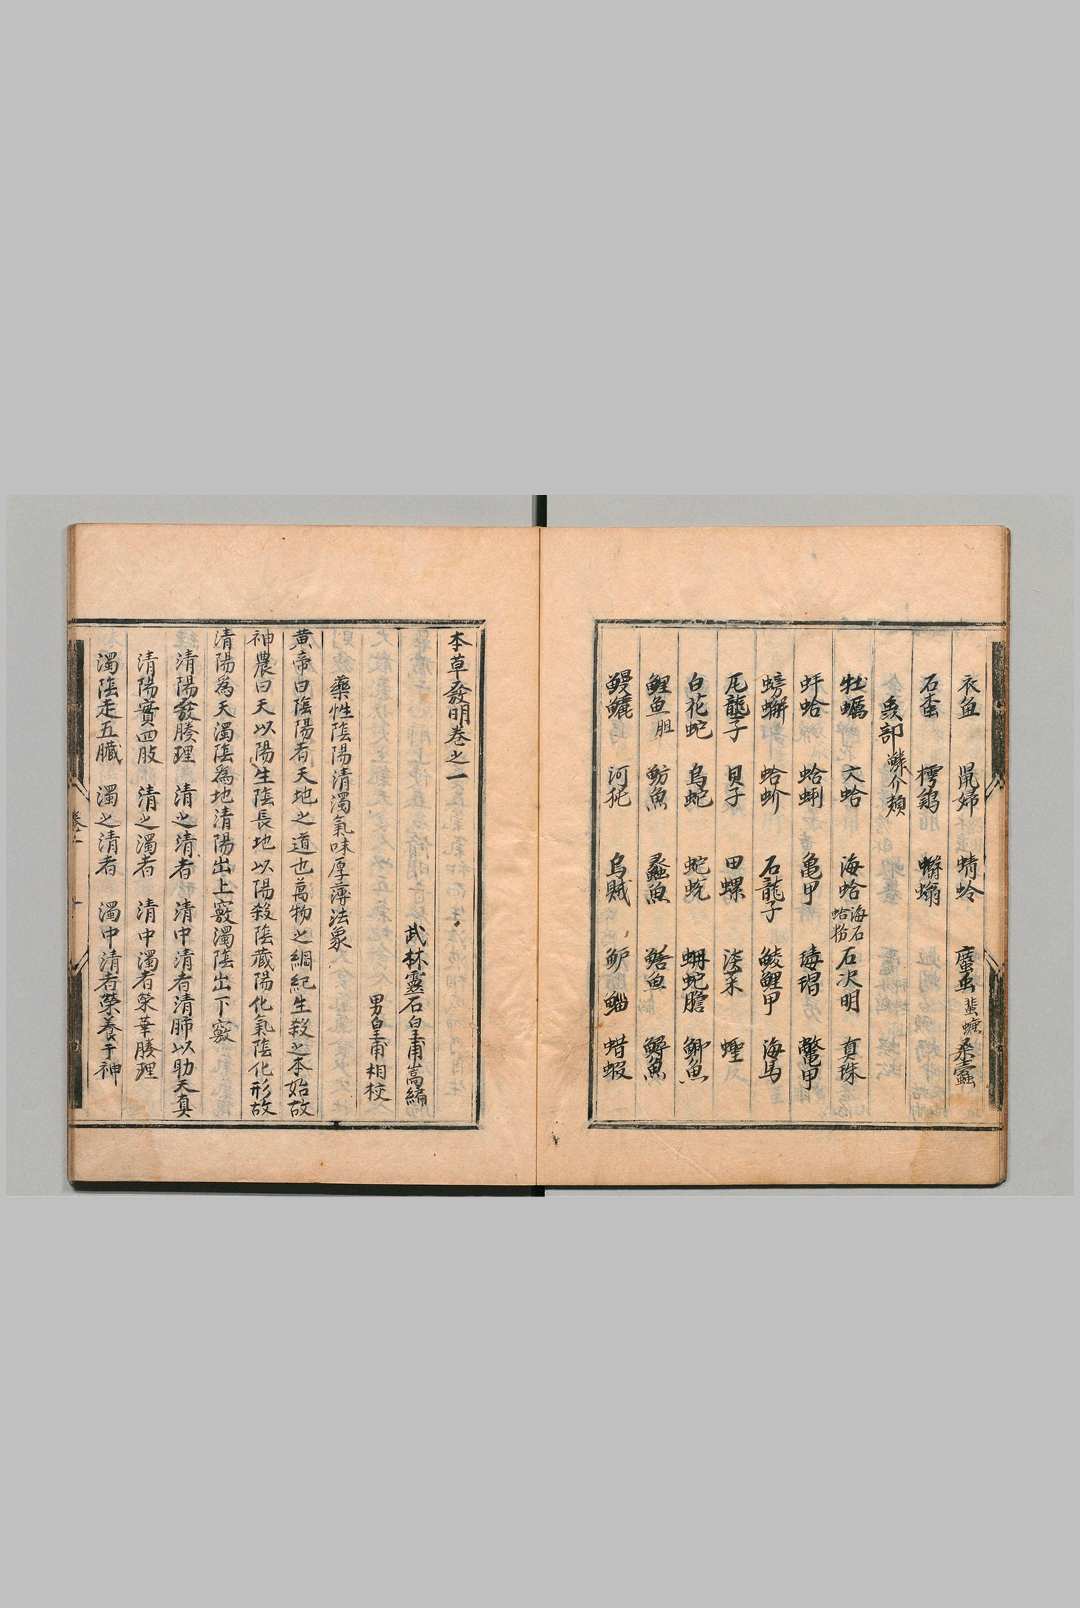 衣魚 鼠婦 蜻蛉 䗪虫 蜚蠊 桑蠹
石蚕 樗鷄 蠮螉
虫部 鱗介類
牡蠣 文蛤 海蛤 海石 蛤粉 石决明 真珠
蚌蛤 蛤蜊 亀甲 瑇瑁 鱉甲
螃蠏 蛤蚧 石龍子 鯪鯉甲 海馬
瓦壟子 貝子 田螺 淡菜 蟶
白花蛇 烏蛇 蛇蛻 蚺蛇膽 鯽魚
鯉魚胆 魴魚 蠡魚 鱔魚 鱘魚
鰻鱺 河㹠 烏賊 鮓 鯔 蜡蝦
本草發明卷之一
武林靈石皇甫嵩編
男皇甫相校
藥性陰陽清濁氣味厚薄法象
黄帝曰陰陽者天地之道也萬物之綱紀生殺之本始故
神農曰天以陽生陰長地以陽殺陰藏陽化氣陰化形故
清陽為天濁陰為地清陽出上竅濁陰出下竅
清陽發腠理 清之清者 清中清者清肺以助天真
清陽實四肢 清之濁者 清中濁者榮華腠理
濁陰走五臟 濁之清者 濁中清者榮養于神
卷一